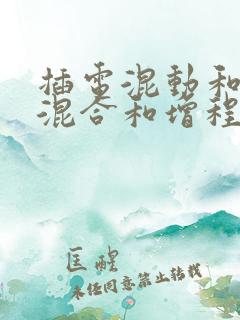 插电混動和
混合和增程
匡醒
未经同意禁止转载